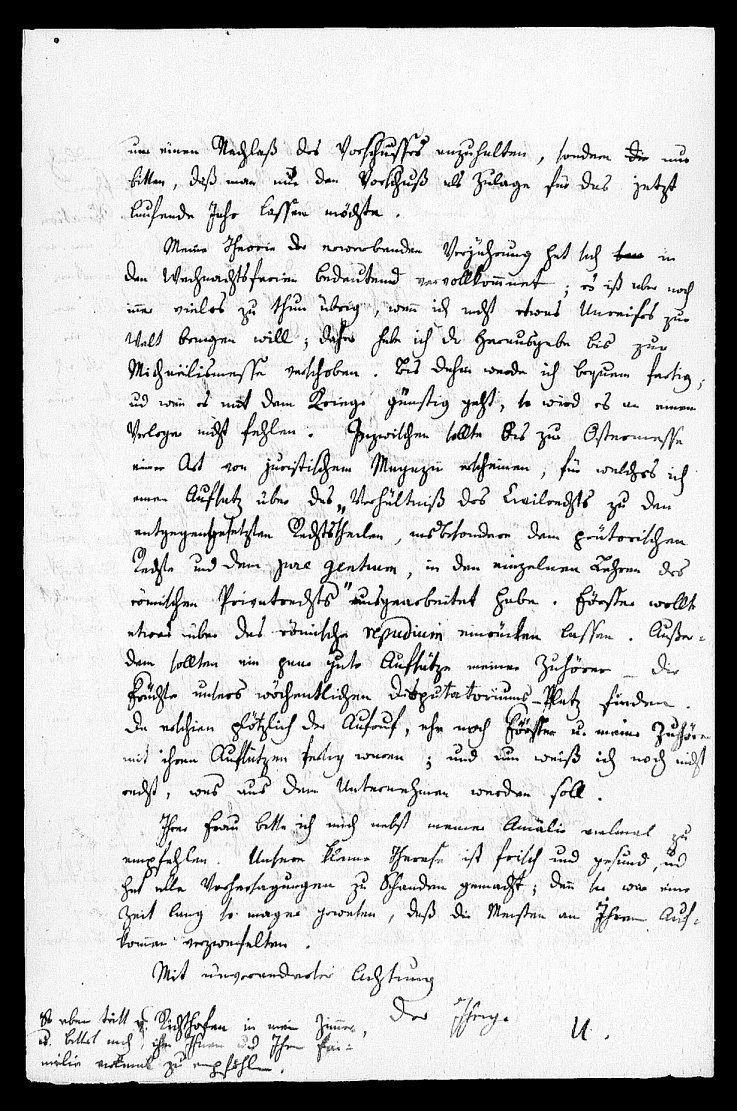 um einen Nachlaß des Vorschusses anzuhalten, sondern die nur
bitten, daß man nur den Vorschuß als Zulage für das jetzt
laufende Jahr lassen möchte.
Meine Theorie der erwerbenden Verjährung hat sich in
den Weihnachtsferien bedeutend vervollkommnet; es ist aber noch
immer vieles zu thun übrig, wenn ich nicht etwas Unreifes zur
Welt bringen will; daher habe ich die Herausgabe bis zur
Michaelismesse verschoben. Bis dahin werde ich bequem fertig;
und wenn es mit dem Kriege günstig geht, so wird es an einem
Verleger nicht fehlen. Inzwischen sollte bis zur Ostermesse
eine Art von juristischem Magazin erscheinen, für welches ich
einen Aufsatz über das „Verhältniß des Civilrechts zu den
entgegengesetzten Rechtstheilen, insbesondere dem prätorischen
Rechte und dem jure gentium, in den einzelnen Lehren des
römischen Privatrechts" ausgearbeitet habe. Förster wollte
etwas über das römische repudium einrücken lassen. Außer-
dem sollten ein paar gute Aufsätze meiner Zuhörer – die
Früchte unsers wöchentlichen Disputatoriums – Platz finden.
Da erschien plötzlich der Aufruf, ehe noch Förster u. meine Zuhörer
mit ihren Aufsätzen fertig waren; und nun weiß ich noch nicht
recht, was aus dem Unternehmen werden soll.
Ihrer Frau bitte ich mich nebst meiner Amalie vielmal zu
empfehlen. Unsere kleine Therese ist frisch und gesund, und
hat alle Vorhersagungen zu Schanden gemacht; denn sie war eine
Zeit lang so mager gewesen, daß die Meisten an Ihrem Auf-
kommen verzweifelten.
Mit unveränderter Achtung
Der Ihrige
U.
So eben tritt v. Richthofen in mein Zimmer,
u. bittet mich, ihn Ihnen und Ihrer Fa-
milie vielmal zu empfehlen.